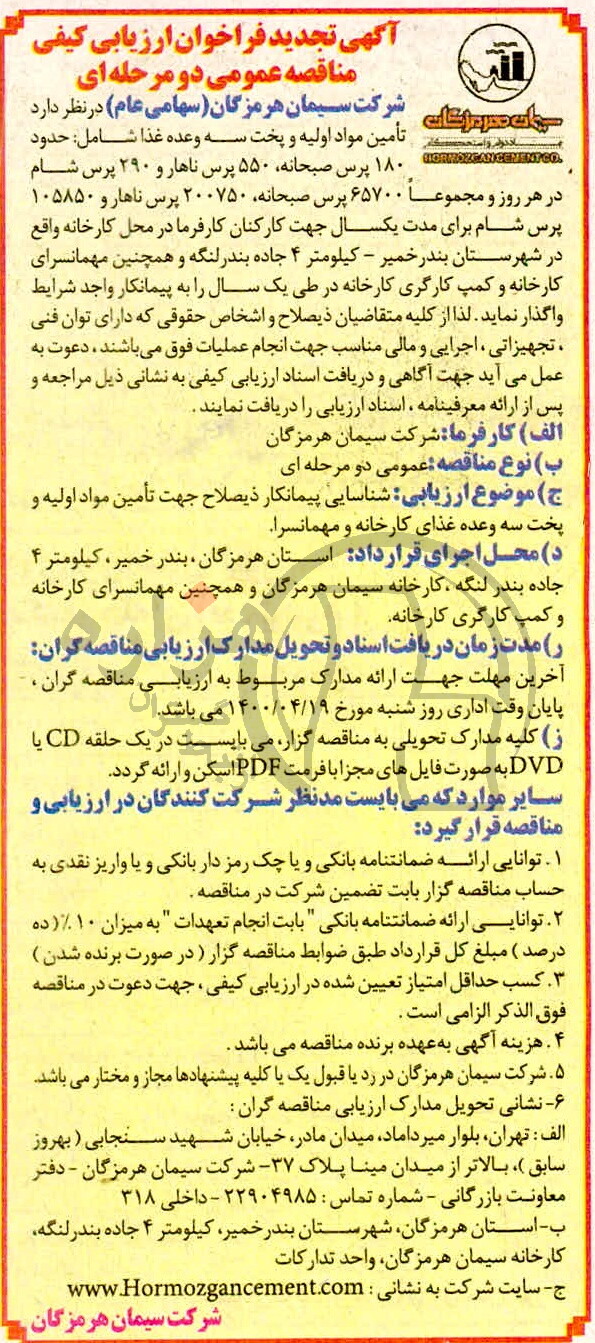 آگهی تجدید فراخوان ارزیابی کیفی
مناقصه عمومی دو مرحله ای
سیمان هرمزگان
HORMOZGAN CEMENT CO.
شرکت سیمان هرمزگان (سهامی عام) در نظر دارد
تأمین مواد اولیه و پخت سه وعده غذا شامل: حدود
۱۸۰ پرس صبحانه، ۵۵۰ پرس ناهار و ۲۹۰ پرس شام
در هر روز و مجموعاً ۶۵۷۰۰ پرس صبحانه، ۲۰۰۷۵۰ پرس ناهار و ۱۰۵۸۵۰
پرس شام برای مدت یکسال جهت کارکنان کارفرما در محل کارخانه واقع
در شهرستان بندرخمیر - کیلومتر ۴ جاده بندرلنگه و همچنین مهمانسرای
کارخانه و کمپ کارگری کارخانه در طی یک سال را به پیمانکار واجد شرایط
واگذار نماید. لذا از کلیه متقاضیان ذیصلاح و اشخاص حقوقی که دارای توان فنی
، تجهیزاتی ، اجرایی و مالی مناسب جهت انجام عملیات فوق می‌باشند ، دعوت به
عمل می آید جهت آگاهی و دریافت اسناد ارزیابی کیفی به نشانی ذیل مراجعه و
پس از ارائه معرفینامه ، اسناد ارزیابی را دریافت نمایند .
الف) کارفرما: شرکت سیمان هرمزگان
ب) نوع مناقصه: عمومی دو مرحله ای
ج) موضوع ارزیابی: شناسایی پیمانکار ذیصلاح جهت تأمین مواد اولیه و
پخت سه وعده غذای کارخانه و مهمانسرا.
د) محل اجرای قرارداد: استان هرمزگان ، بندر خمیر ، کیلومتر ۴
جاده بندر لنگه ، کارخانه سیمان هرمزگان و همچنین مهمانسرای کارخانه
و کمپ کارگری کارخانه.
ر) مدت زمان دریافت اسناد و تحویل مدارک ارزیابی مناقصه گران:
آخرین مهلت جهت ارائه مدارک مربوط به ارزیابی مناقصه گران ،
پایان وقت اداری روز شنبه مورخ ۱۴۰۰/۰۴/۱۹ می باشد.
ز) کلیه مدارک تحویلی به مناقصه گزار، می بایست در یک حلقه CD یا
DVD به صورت فایل های مجزا با فرمت PDF اسکن و ارائه گردد.
سایر موارد که می بایست مدنظر شرکت کنندگان در ارزیابی و
مناقصه قرار گیرد:
۱. توانایی ارائه ضمانتنامه بانکی و یا چک رمز دار بانکی و یا واریز نقدی به
حساب مناقصه گزار بابت تضمین شرکت در مناقصه .
۲. توانایی ارائه ضمانتنامه بانکی " بابت انجام تعهدات " به میزان ۱۰٪ ( ده
درصد ) مبلغ کل قرارداد طبق ضوابط مناقصه گزار ( در صورت برنده شدن )
۳. کسب حداقل امتیاز تعیین شده در ارزیابی کیفی ، جهت دعوت در مناقصه
فوق الذکر الزامی است .
۴. هزینه آگهی به‌عهده برنده مناقصه می باشد .
۵. شرکت سیمان هرمزگان در رد یا قبول یک یا کلیه پیشنهادها مجاز و مختار می باشد.
۶- نشانی تحویل مدارک ارزیابی مناقصه گران :
الف : تهران، بلوار میرداماد، میدان مادر، خیابان شهید سنجابی ( بهروز
سابق )، بالاتر از میدان مینا پلاک ۳۷- شرکت سیمان هرمزگان - دفتر
معاونت بازرگانی - شماره تماس : ۲۲۹۰۴۹۸۵ - داخلی ۳۱۸
ب- استان هرمزگان، شهرستان بندرخمیر، کیلومتر ۴ جاده بندرلنگه،
کارخانه سیمان هرمزگان، واحد تدارکات
ج- سایت شرکت به نشانی : www.Hormozgancement.com
شرکت سیمان هرمزگان
هزاره